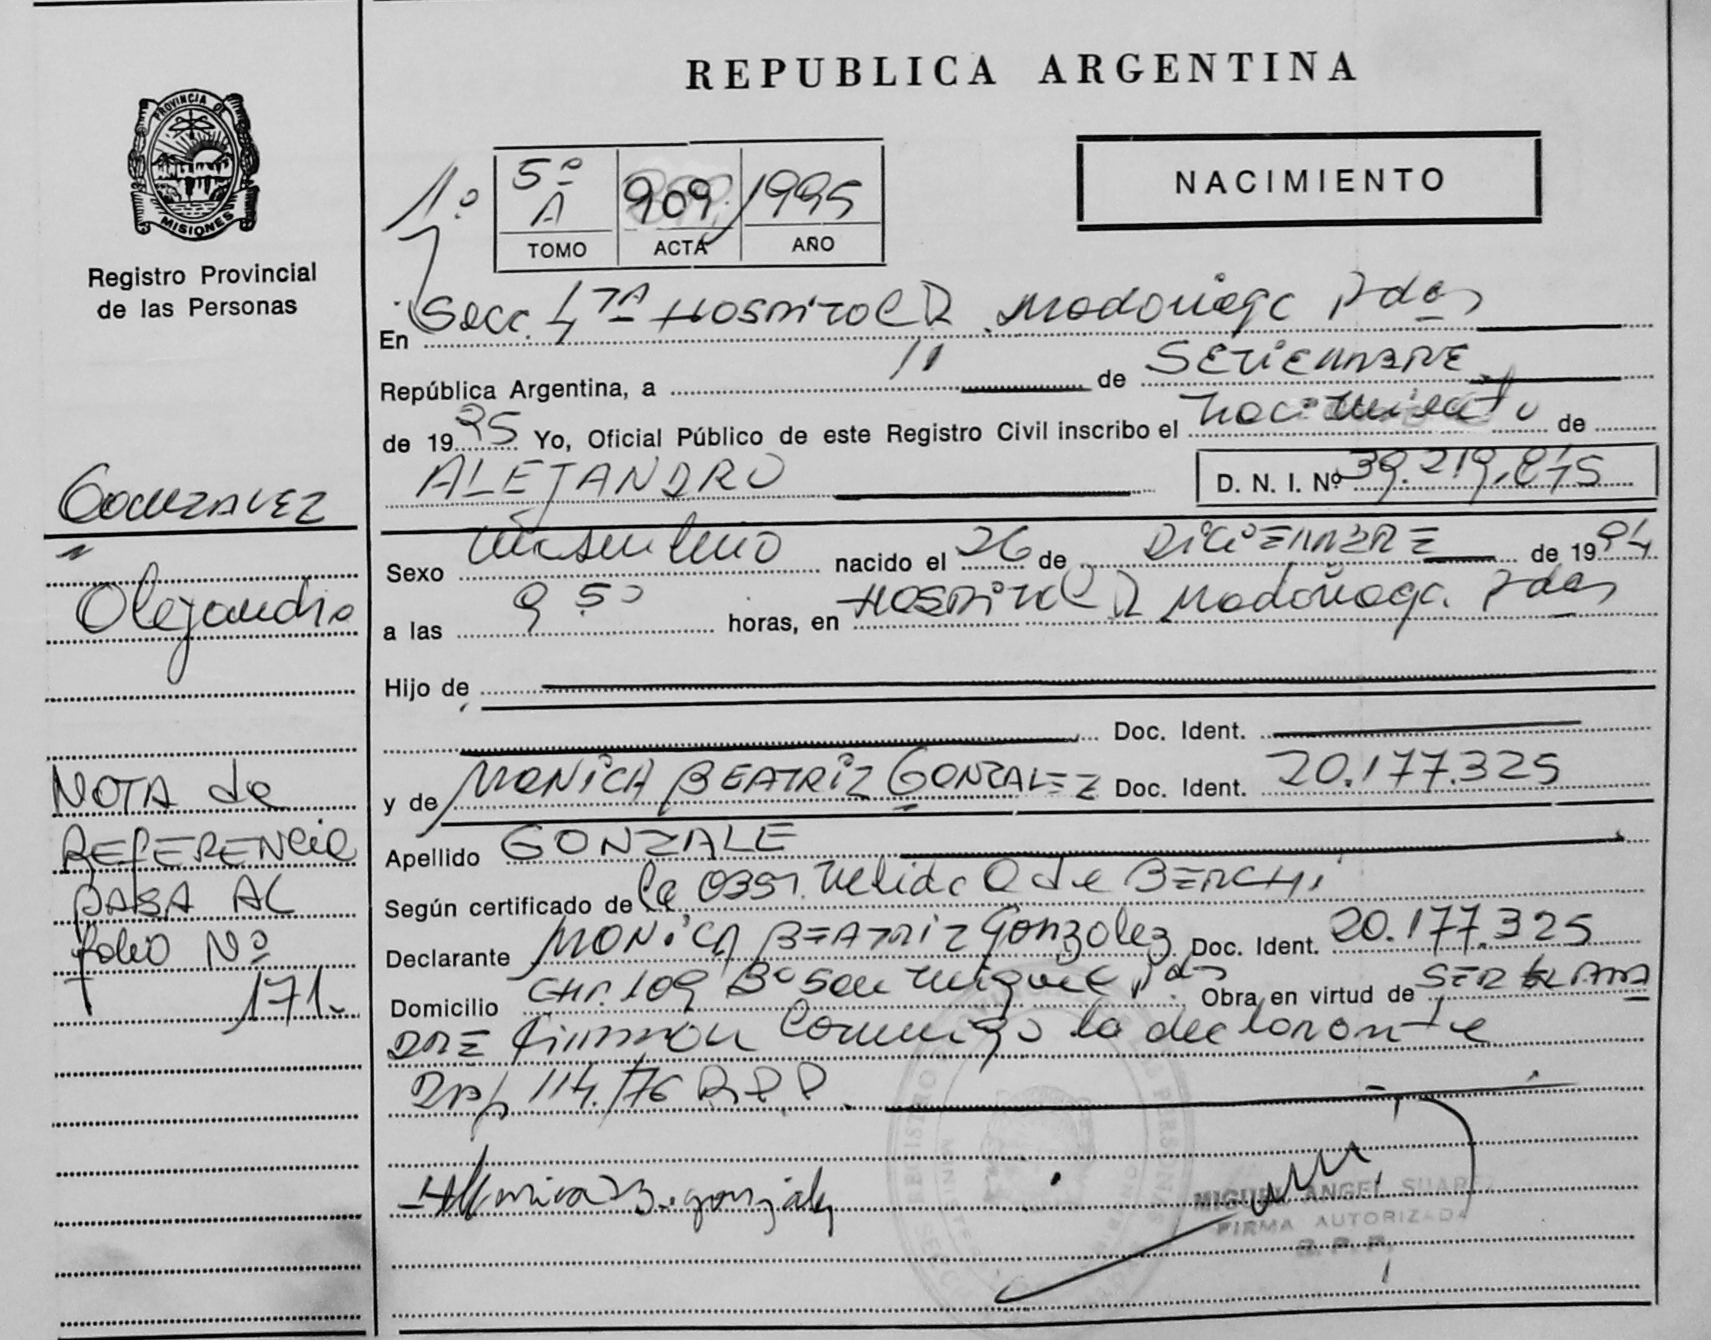 REPUBLICA ARGENTINA
PROVINCIA DE MISIONES
Registro Provincial
de las Personas
NACIMIENTO
1º
5º A 909 1995
TOMO ACTA AÑO
En Secc 4TA Hospital R Madariaga Pdas
República Argentina, a 11 de SETIEMBRE
de 1995 Yo, Oficial Público de este Registro Civil inscribo el nacimiento de
ALEJANDRO D. N. I. Nº 39.219.875
Sexo Masculino nacido el 26 de DICIEMBRE de 1994
a las 9 50 horas, en HOSPITAL R Madariaga Pdas
Hijo de
Doc. Ident.
y de MONICA BEATRIZ GONZALEZ Doc. Ident. 20.177.325
Apellido GONZALE
Según certificado de la OBST. Nelida Q de BERCHI
Declarante MONICA BEATRIZ Gonzalez Doc. Ident. 20.177.325
Domicilio CHP. 109 Bº San Miguel Pdas Obra en virtud de SER LA MA
DRE firman Conmigo la declarante
114/76 R P P
B. gonzalez
MIGUEL ANGEL SUAREZ
FIRMA AUTORIZADA
R. P. P.
GONZALEZ
Alejandro
NOTA de
REFERENCIA
PASA AL
folio Nº
171.